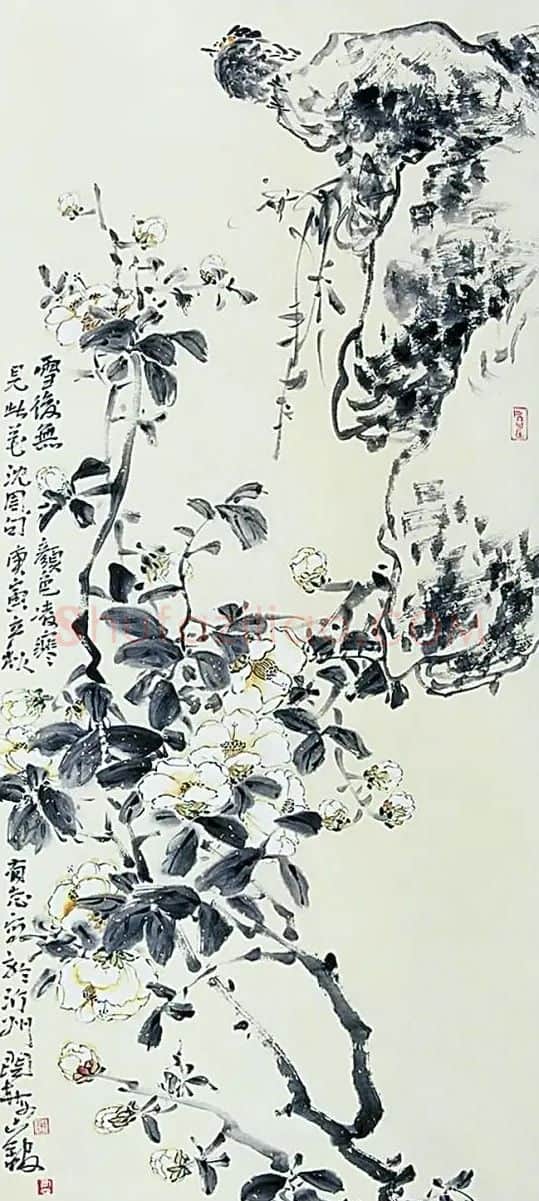 雪後無顏色凌寒
見此花沈周句庚寅秋
有志寫於沂州山館
Shufaziliao.com